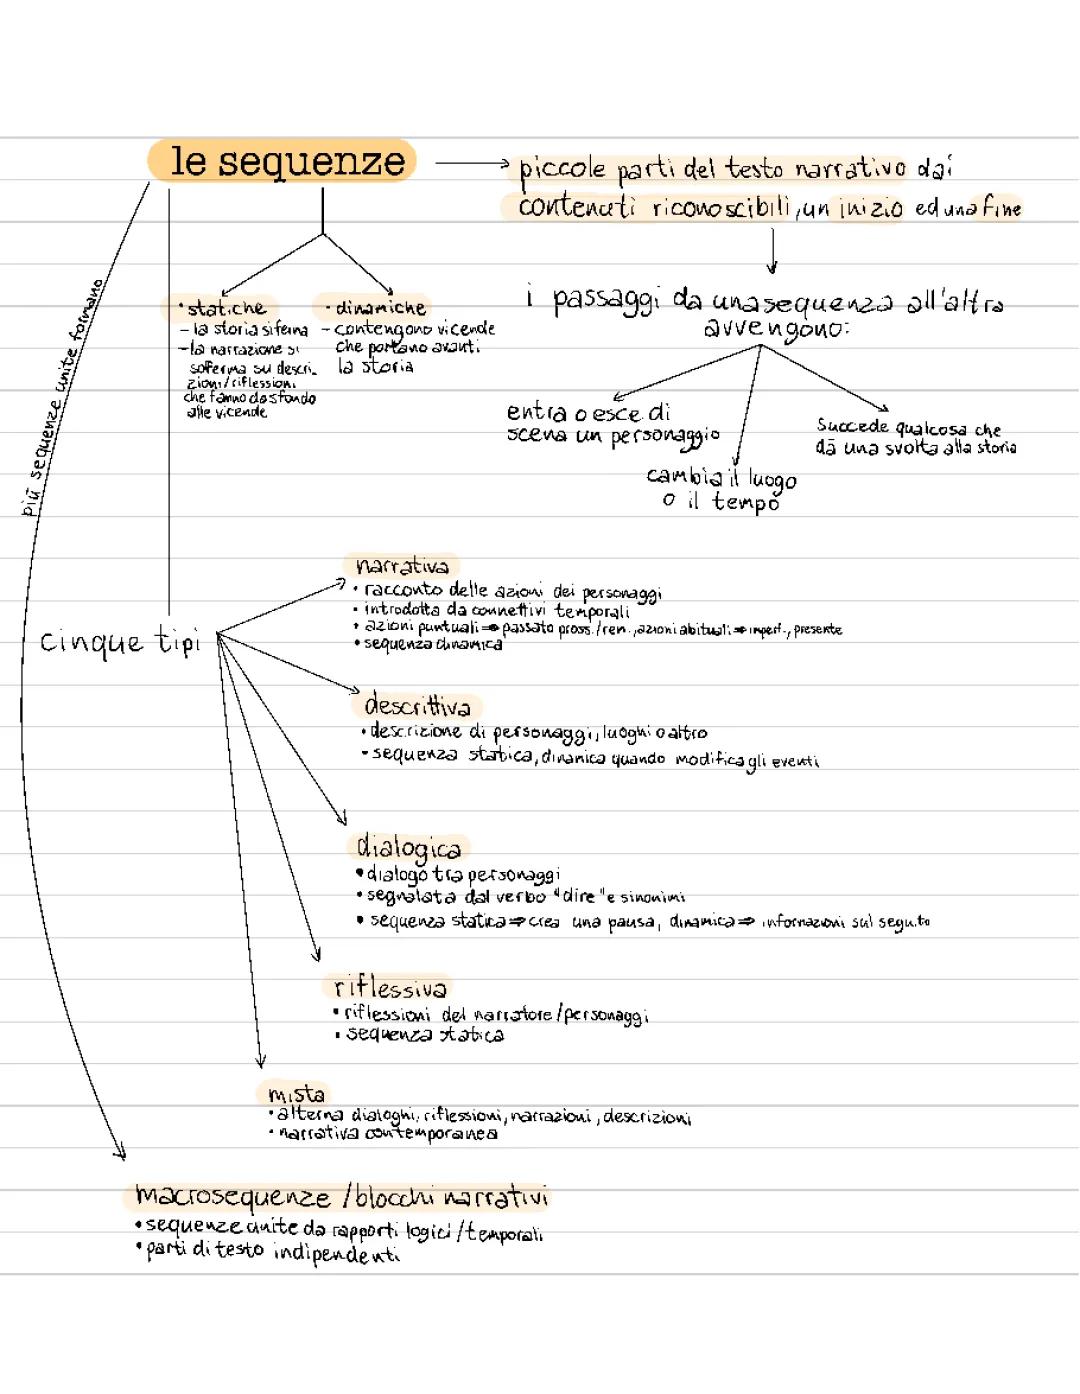 le sequenze
piccole parti del testo narrativo dai
contenuti riconoscibili, un inizio ed una fine
• statiche
- la storia si ferma
- la narrazione si
sofferma su descri-
zioni/riflessioni
che fanno da sfondo
alle vicende
- dinamiche
- contengono vicende
che portano avanti
la storia
i passaggi da una sequenza all'altra
avvengono:
entra o esce di
scena un personaggio
cambia il luogo
o il tempo
Succede qualcosa che
dà una svolta alla storia
più sequenze unite formano
cinque tipi
narrativa
• racconto delle azioni dei personaggi
• introdotta da connettivi temporali
• azioni puntuali ⇒ passato pross./rem., azioni abituali ⇒ imperf., presente
• sequenza dinamica
descrittiva
• descrizione di personaggi, luoghi o altro
• sequenza statica, dinamica quando modifica gli eventi
dialogica
• dialogo tra personaggi
• segnalata dal verbo "dire" e sinonimi
• sequenza statica ⇒ crea una pausa, dinamica ⇒ informazioni sul seguito
riflessiva
• riflessioni del narratore/personaggi
• sequenza statica
mista
• alterna dialoghi, riflessioni, narrazioni, descrizioni
• narrativa contemporanea
macrosequenze / blocchi narrativi
• sequenze unite da rapporti logici/temporali
• parti di testo indipendenti